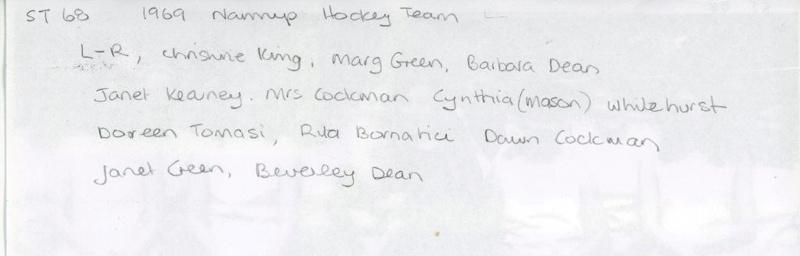 ST 68 1969 Nannup Hockey Team
L-R, Christine King, Marg Green, Barbara Dean
Janet Kearney. Mrs Cockman Cynthia (Mason) Whitehurst
Doreen Tomasi, Dawn Cockman
Janet Green, Beverley Dean